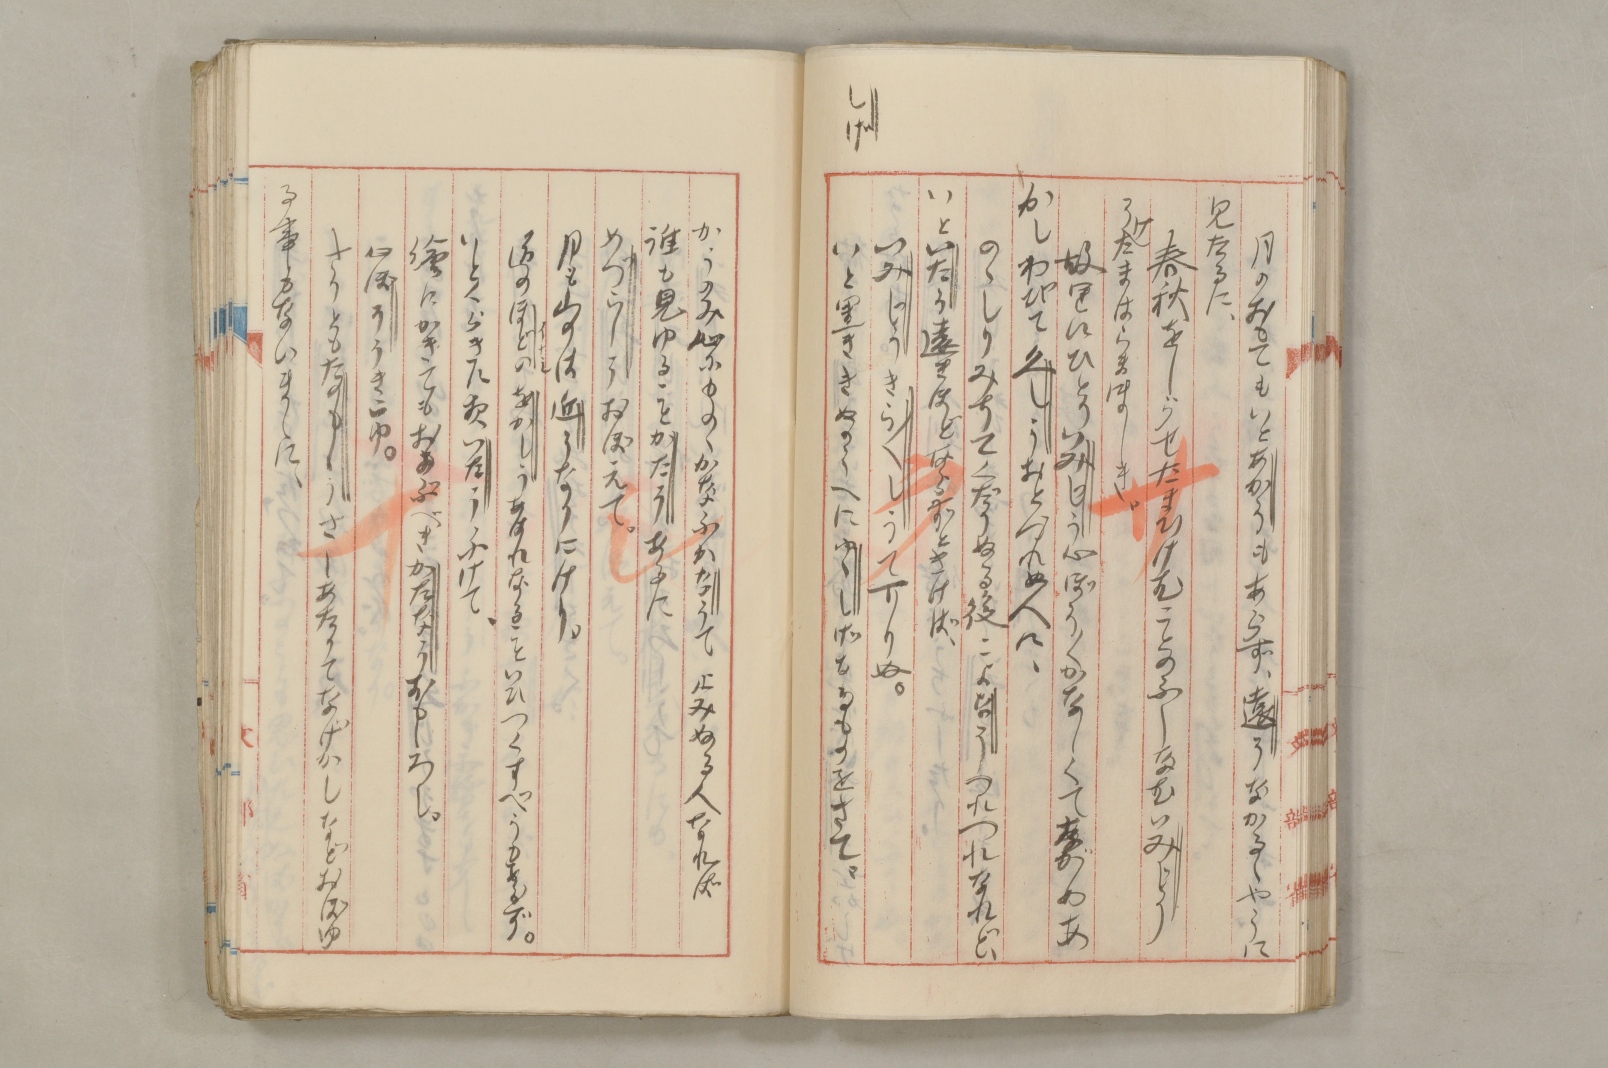 しげ
月のおもてもいとあかうもあらず、遠うなかるゝやうに
見たるに、
春秋をしらせたまひけむことのふしなむいみじう
うけたまはらまほしき。
故里にひとりいみじう心ぼそくかなしくてながめあ
かしわびて久しうおとづれぬ人に、
のゝしりみちてくだりぬる後こよなうつれづれなれど、
いといたう遠きほどならずときけば、
いみじうきらべしうて下りぬ。
いと黒ききぬのうへにゆゝしげなるものをきて。
かうのみ心にものゝかなふかたなうて止みぬる人なれば
誰も見ゆることかたうあるに
めづらしうおぼえて。
月も山のは近うなりにけり。
道のほどのをかしうあはれなること、いひつくすべうもあらず。
いとくらきに夜いたうふけて、
繪にかきてもおよぶべきかたなうおもしろし。
心ぼそうきこゆ。
さうともなのもしうさしあたりてなげかしなどおぼゆ
る事もないまゝに、